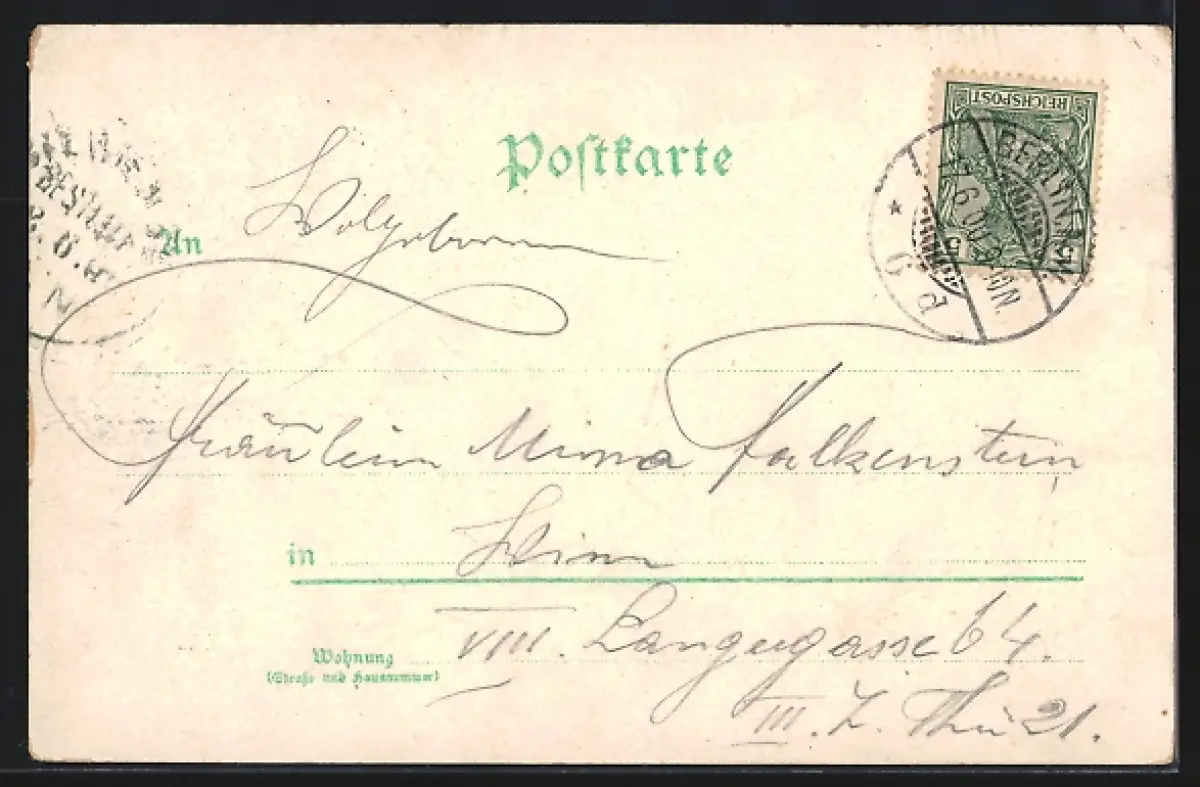 Postkarte
REICHSPOST
BERLIN.
17.6.00.
6 d
An Wolgeboren
Fräulein Minna Falkenstein
in Wien
VIII. Langegasse 64.
Wohnung
(Straße und Hausnummer)
III. Thü 21.